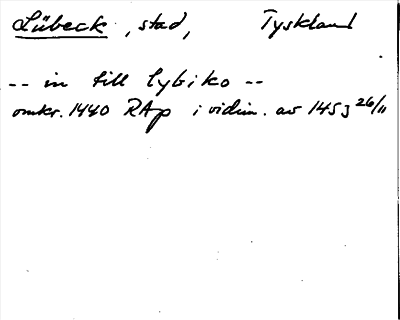 Lübeck, stad, Tyskland
-- in till lybiko --
omkr. 1440 RAp i vidim. av 1453 26/11